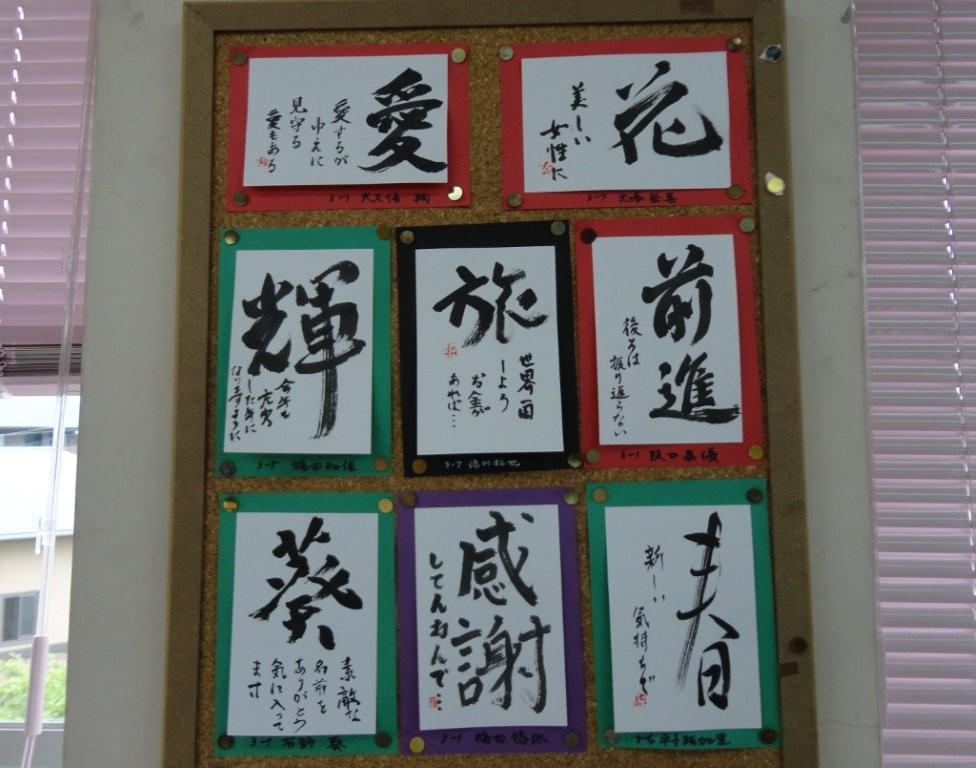 愛
愛するが
ゆえに
見守る
愛もある
3-1 大久保
花
美しい
女性に
3-7 大塚
輝
今年も
充実
した年に
なりますように
3-5 福田知佳
旅
世界一周
しよう
お金が
あれば…
3-7
前進
後ろは
振り返らない
3-1 阪口
葵
素敵な
名前を
ありがとう
気に入って
ます
3-1 布野 葵
感謝
してんねんで…
3-1 梅田
春
新しい
気持ちで
3-6